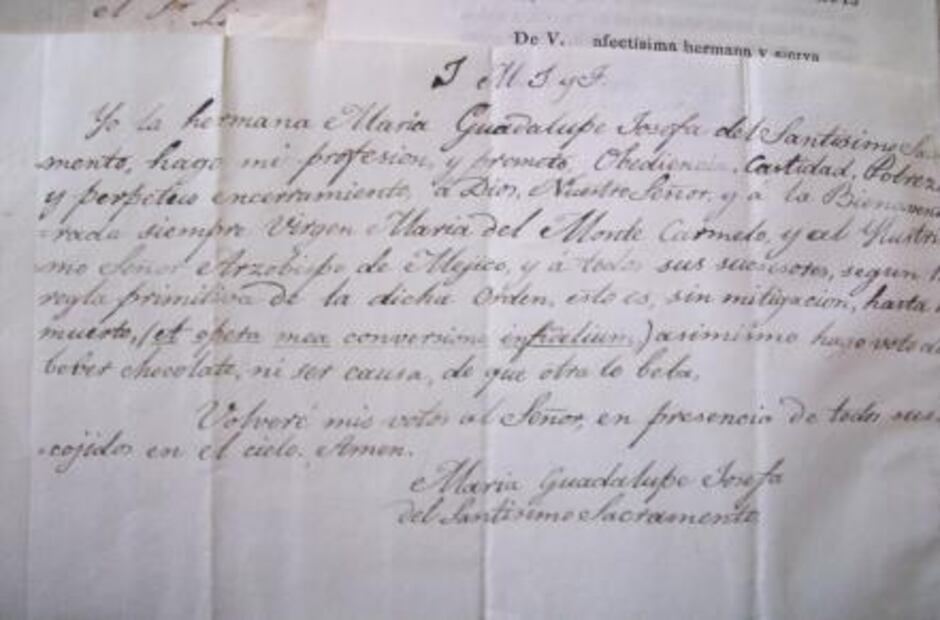 el Sr.
De V. afectísima hermana y sierva
J M J y J.
Yo la hermana Maria Guadalupe Josefa del Santisimo Sacra
mento, hago mi profesion, y prometo Obediencia, Castidad, Pobreza
y perpetuo encerramiento, á Dios, Nuestro Señor, y á la Bienaventu
rada siempre Virgen Maria del Monte Carmelo, y al Ilustrisi
mo Señor Arzobispo de Mejico, y á todos sus sucesores, segun
regla primitiva de la dicha Orden, esto es, sin mitigacion, hasta
muerte, (et opera mea conversione infidelium,) asimismo hago voto de
bever chocolate, ni ser causa, de que otra lo beba.
Volveré mis votos al Señor, en presencia de todos sus
cojidos en el cielo. Amen.
Maria Guadalupe Josefa
del Santisimo Sacramento